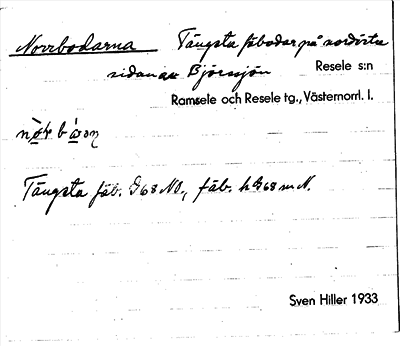 Norrbodarna Tängsta fäbodar på nordöstra
sidan av Björssjön Resele s:n
Ramsele och Resele tg., Västernorrl. l.
Tängsta fäb. G68 NO, fäb. h G68 m N.
Sven Hiller 1933